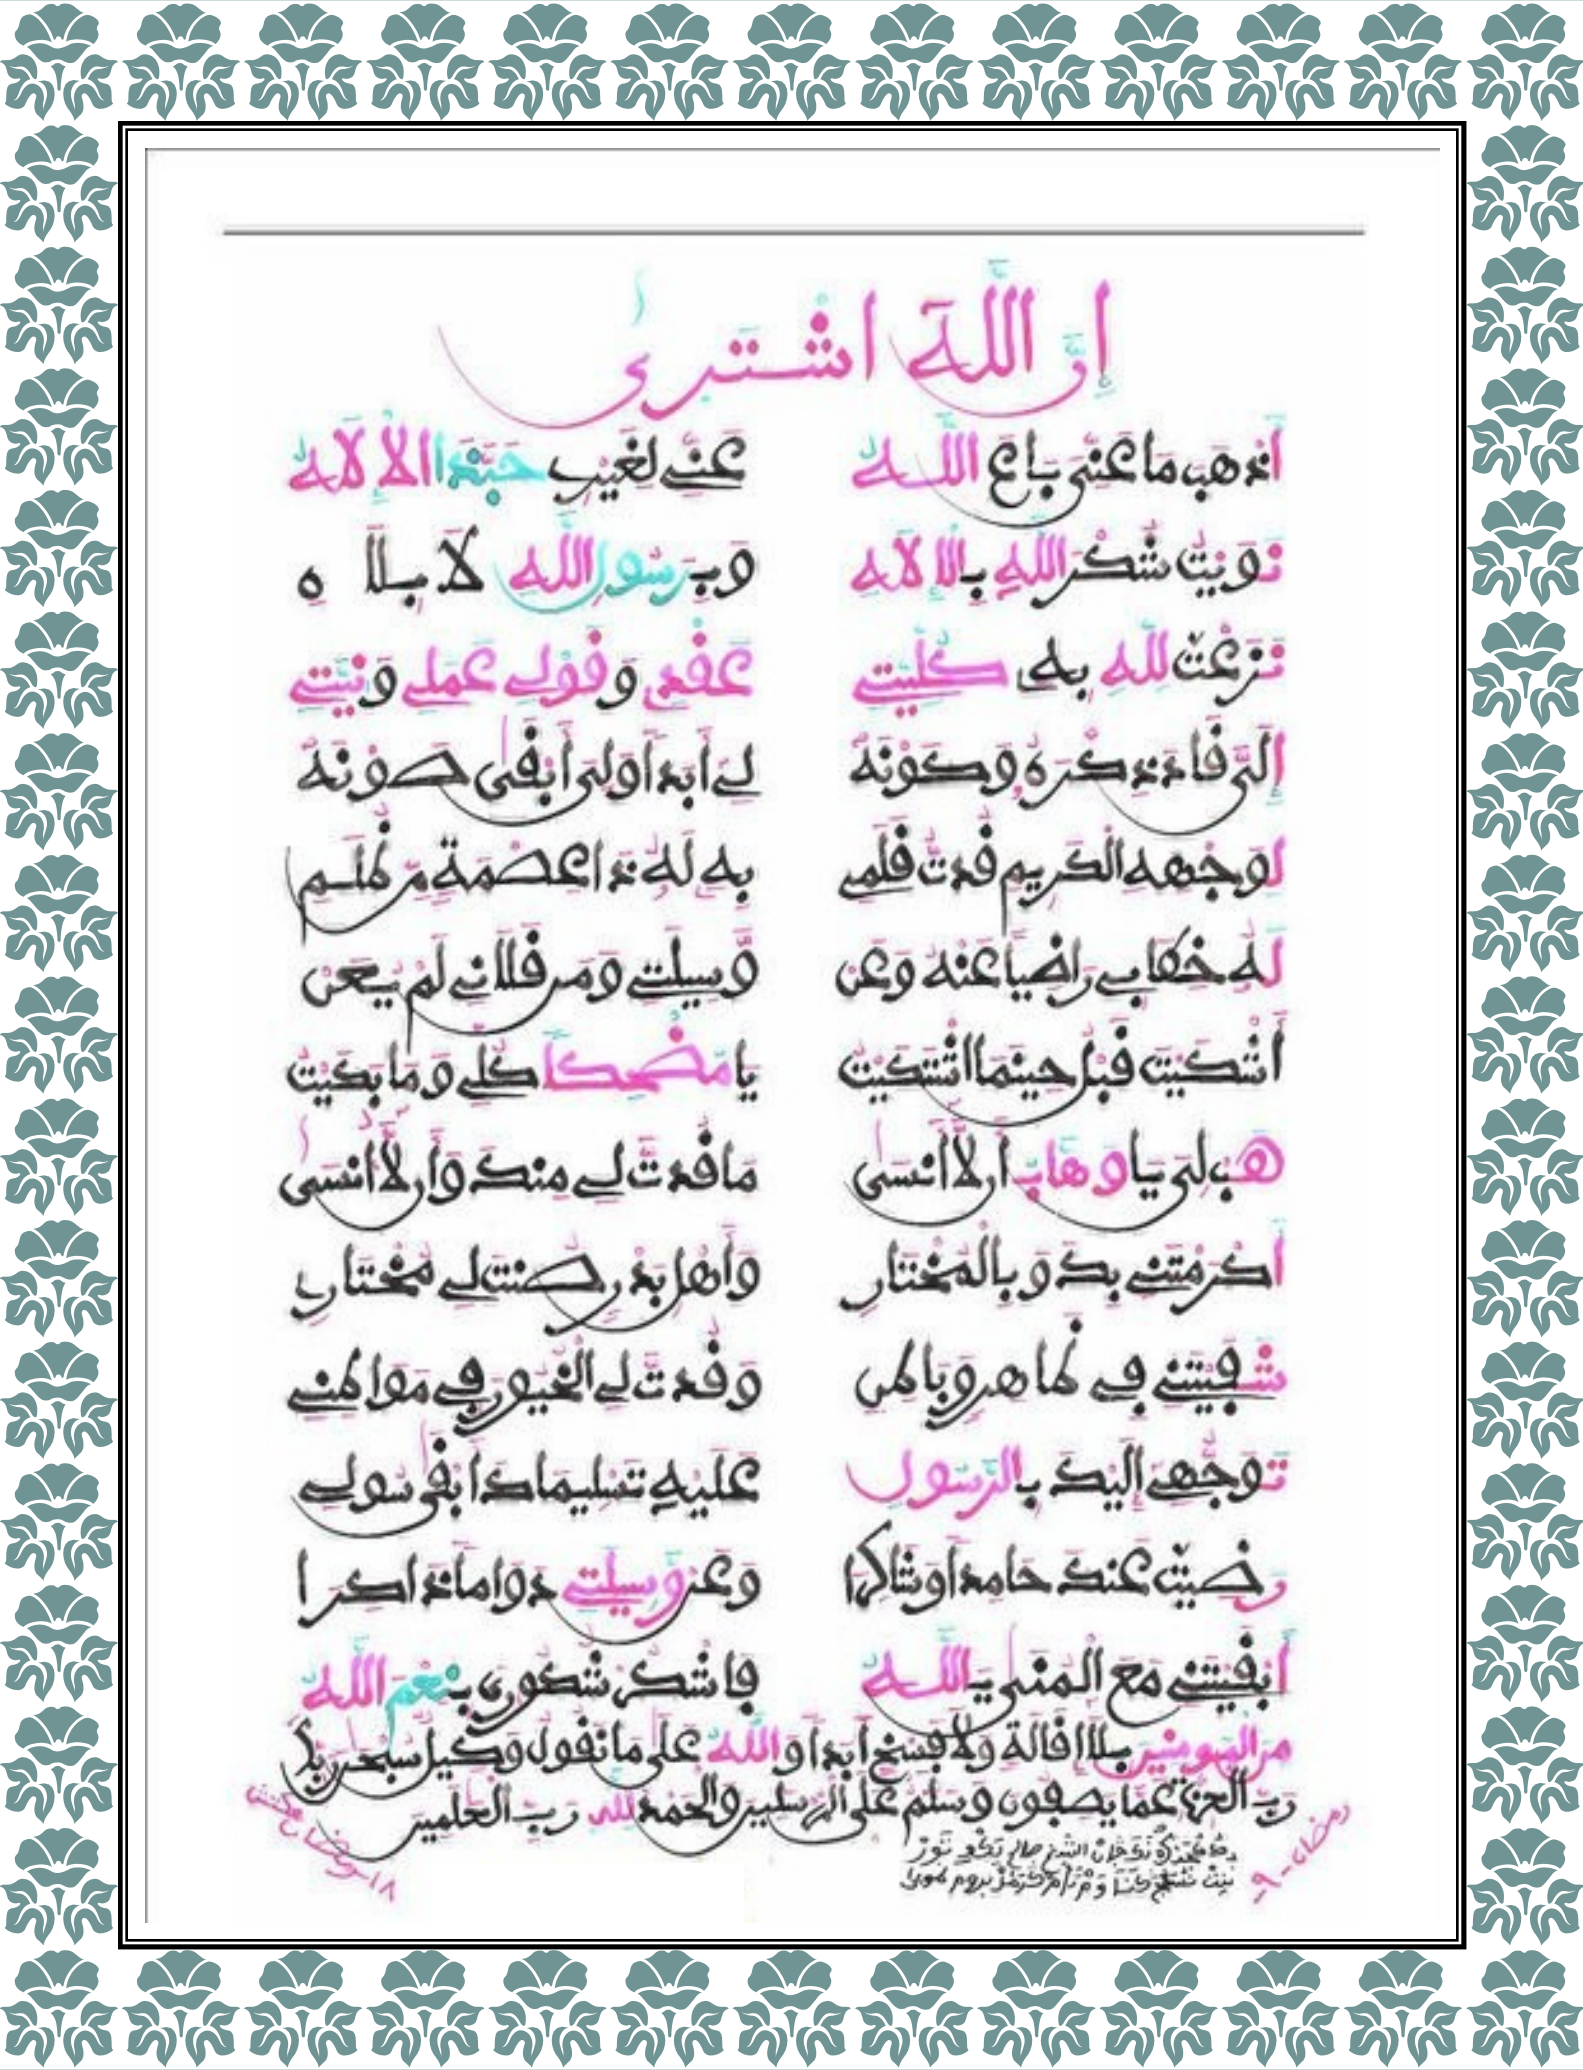 إِنَّ اللَّهَ اشْتَرَى
أَذْهَبَ مَا عَنِّى بَاعَ اللَّهُ عَنِّے لِغَيْرِ حِبَّذَا الْإِلَهُ
نَوَيْتُ شُكْرَ اللَّهِ بِالْإِلَهِ وَبِرَسُولِ اللَّهِ لَا بِلَاهِ
نَزَعْتُ لِلَّهِ بِهِ كُلِّيَّتِے عَقْدِے وَقَوْلِے عَمَلِے وَنِيَّتِے
إِلَىَّ قَادَ ذِكْرَهُ وَكَوْنَهُ لِے أَبَدًا وَلِى أَبْقَى صَوْنَهُ
لِوَجْهِهِ الْكَرِيمِ قُدْتُ قَلَمِے بِهِ لَهُ ذَا عِصْمَةٍ مِّن ظُلَمِ
لَهُ خِطَابِے رَاضِيًا عَنْهُ وَعَنْ وَسِيلَتِے وَمَن قَلَانِے لَمْ يُعَنْ
اشْتَكَيْتُ قَبْلُ حِينَمَا اشْتَكَيْتُ يَا مُضْحِكًا كُلِّے وَمَا بَكَيْتُ
هَبْ لِى يَا وَهَّابُ أَن لَّا أَنْسَى مَا قُدْتَّ لِے مِنْكَ وَأَن لَّا أُنْسَى
أَكْرَمْتَنِے بِكَ وَبِالْمُخْتَارِ وَأَهْلِ بَدْرٍ صُنْتَ لِے مُخْتَارِ
شَفَيْتَنِے فِے ظَاهِرٍ وَبَاطِنِ وَقُدْتَّ لِے الْخُيُورَ فِے مَوَاطِنِے
تَوَجُّهِے إِلَيْكَ بِالرَّسُولِ عَلَيْهِ تَسْلِيمَا دَأَبْقَى سُولِے
رَضِيتُ عَنْكَ حَامِدًا وَشَاكِرَا وَعَن وَسِيلَتِے دَوَامًا ذَاكِرَا
أَبْقَيْتَنِے مَعَ الْمُنَى يَا اللَّهُ فَاشْكُرْ شُكُورِى بِنِعْمَ اللَّهُ
مِنَ الْمُومِنِينَ بِلَا إِقَالَةٍ وَلَا فَسْخٍ أَبَدًا وَاللَّهُ عَلَى مَا نَقُولُ وَكِيلٌ سُبْحَنَ رَبِّكَ
رَبِّ الْعِزَّةِ عَمَّا يَصِفُونَ وَسَلَمٌ عَلَى الْمُرْسَلِينَ وَالْحَمْدُ لِلَّهِ رَبِّ الْعَلَمِينَ